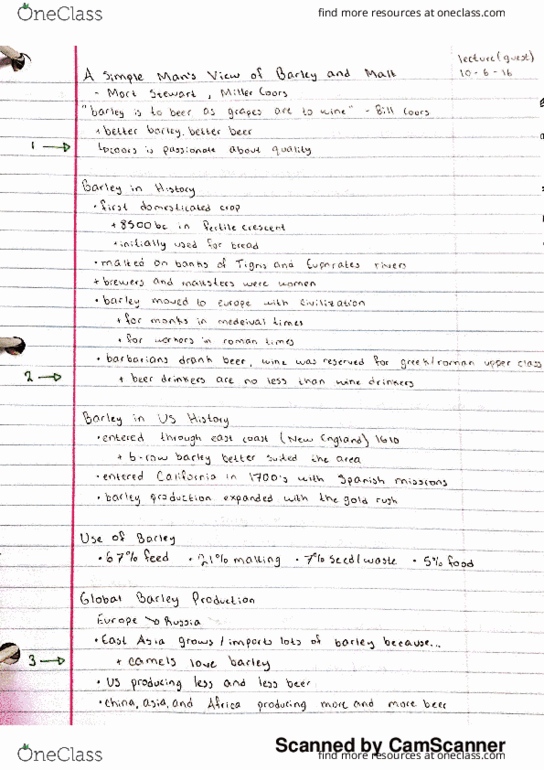 OneClass
find more resources at oneclass.com
lecture (guest)
10-6-16
A Simple Man's View of Barley and Malt
- Mort Stewart, Miller Coors
"barley is to beer as grapes are to wine" - Bill Coors
+ better barley, better beer
1 → ↳ coors is passionate about quality
Barley in History
• first domesticated crop
+ 8500 bc in fertile crescent
• initially used for bread
• malted on banks of Tigris and Euphrates rivers
+ brewers and maltsters were women
• barley moved to europe with civilization
+ for monks in medeival times
• for workers in roman times
• barbarians drank beer, wine was reserved for greek/roman upper class
2 → + beer drinkers are no less than wine drinkers
Barley in US History
• entered through east coast (New England) 1610
+ 6-row barley better suited the area
• entered California in 1700's with Spanish missions
• barley production expanded with the gold rush
Use of Barley
• 67% feed • 21% malting • 7% seed/waste • 5% food
Global Barley Production
Europe → Russia
• East Asia grows / imports lots of barley because...
3 → + camels love barley
• US producing less and less beer
• china, asia, and Africa producing more and more beer
Scanned by CamScanner
OneClass
find more resources at oneclass.com